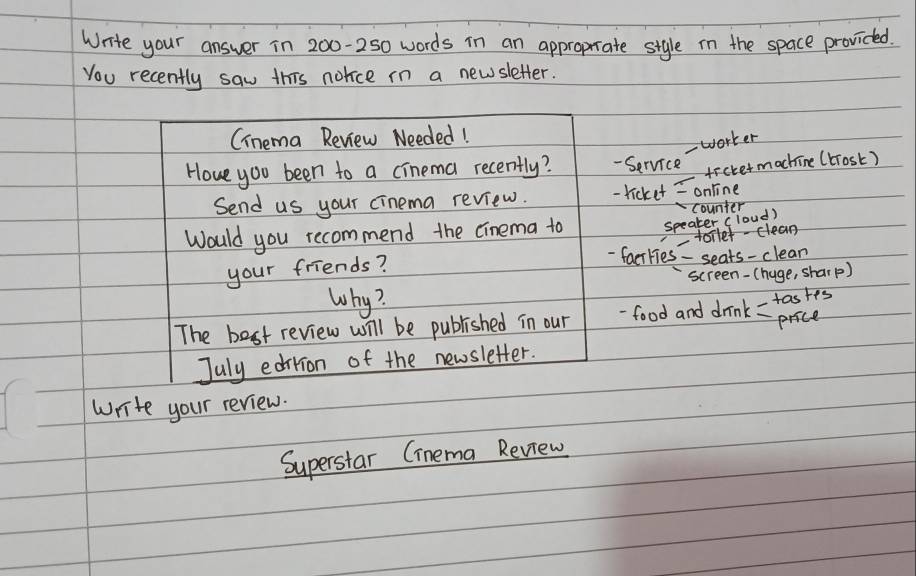 Write your answer in 200-250 words in an appropriate style in the space provided.
You recently saw this notice in a newsletter.
Cinema Review Needed!
Have you been to a cinema recently?
Send us your cinema review.
Would you recommend the cinema to
your friends?
Why?
The best review will be published in our
July edition of the newsletter.
- Service - worker
- ticket - ticket machine (kiosk)
- online
- counter
- facilties - speaker (loud)
- toilet - clean
- seats - clean
- screen - (huge, sharp)
- food and drink - tastes
- price
Write your review.
Superstar Cinema Review